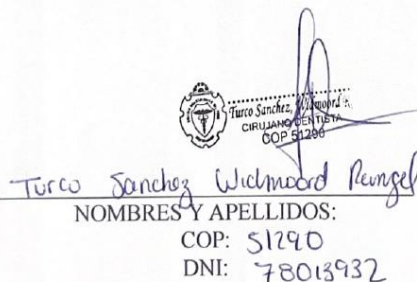 Turco Sanchez, Widmoord R.
CIRUJANO DENTISTA
COP 51290
Turco Sanchez Widmoord Rengel
NOMBRES Y APELLIDOS:
COP: 51290
DNI: 78013932